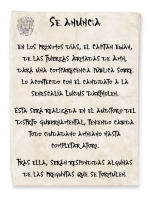 Se anuncia
En los próximos días, el capitán Ewan,
de las Fuerzas Armadas de Ahn,
dará una comparecencia pública sobre
lo acontecido con el candidato a la
Senescalía Lucius Dartholen.
Ésta será realizada en el auditorio del
Distrito Gubernamental, teniendo cabida
todo ciudadano ahniano hasta
completar aforo.
Tras ella, serán respondidas algunas
de las preguntas que se formulen.